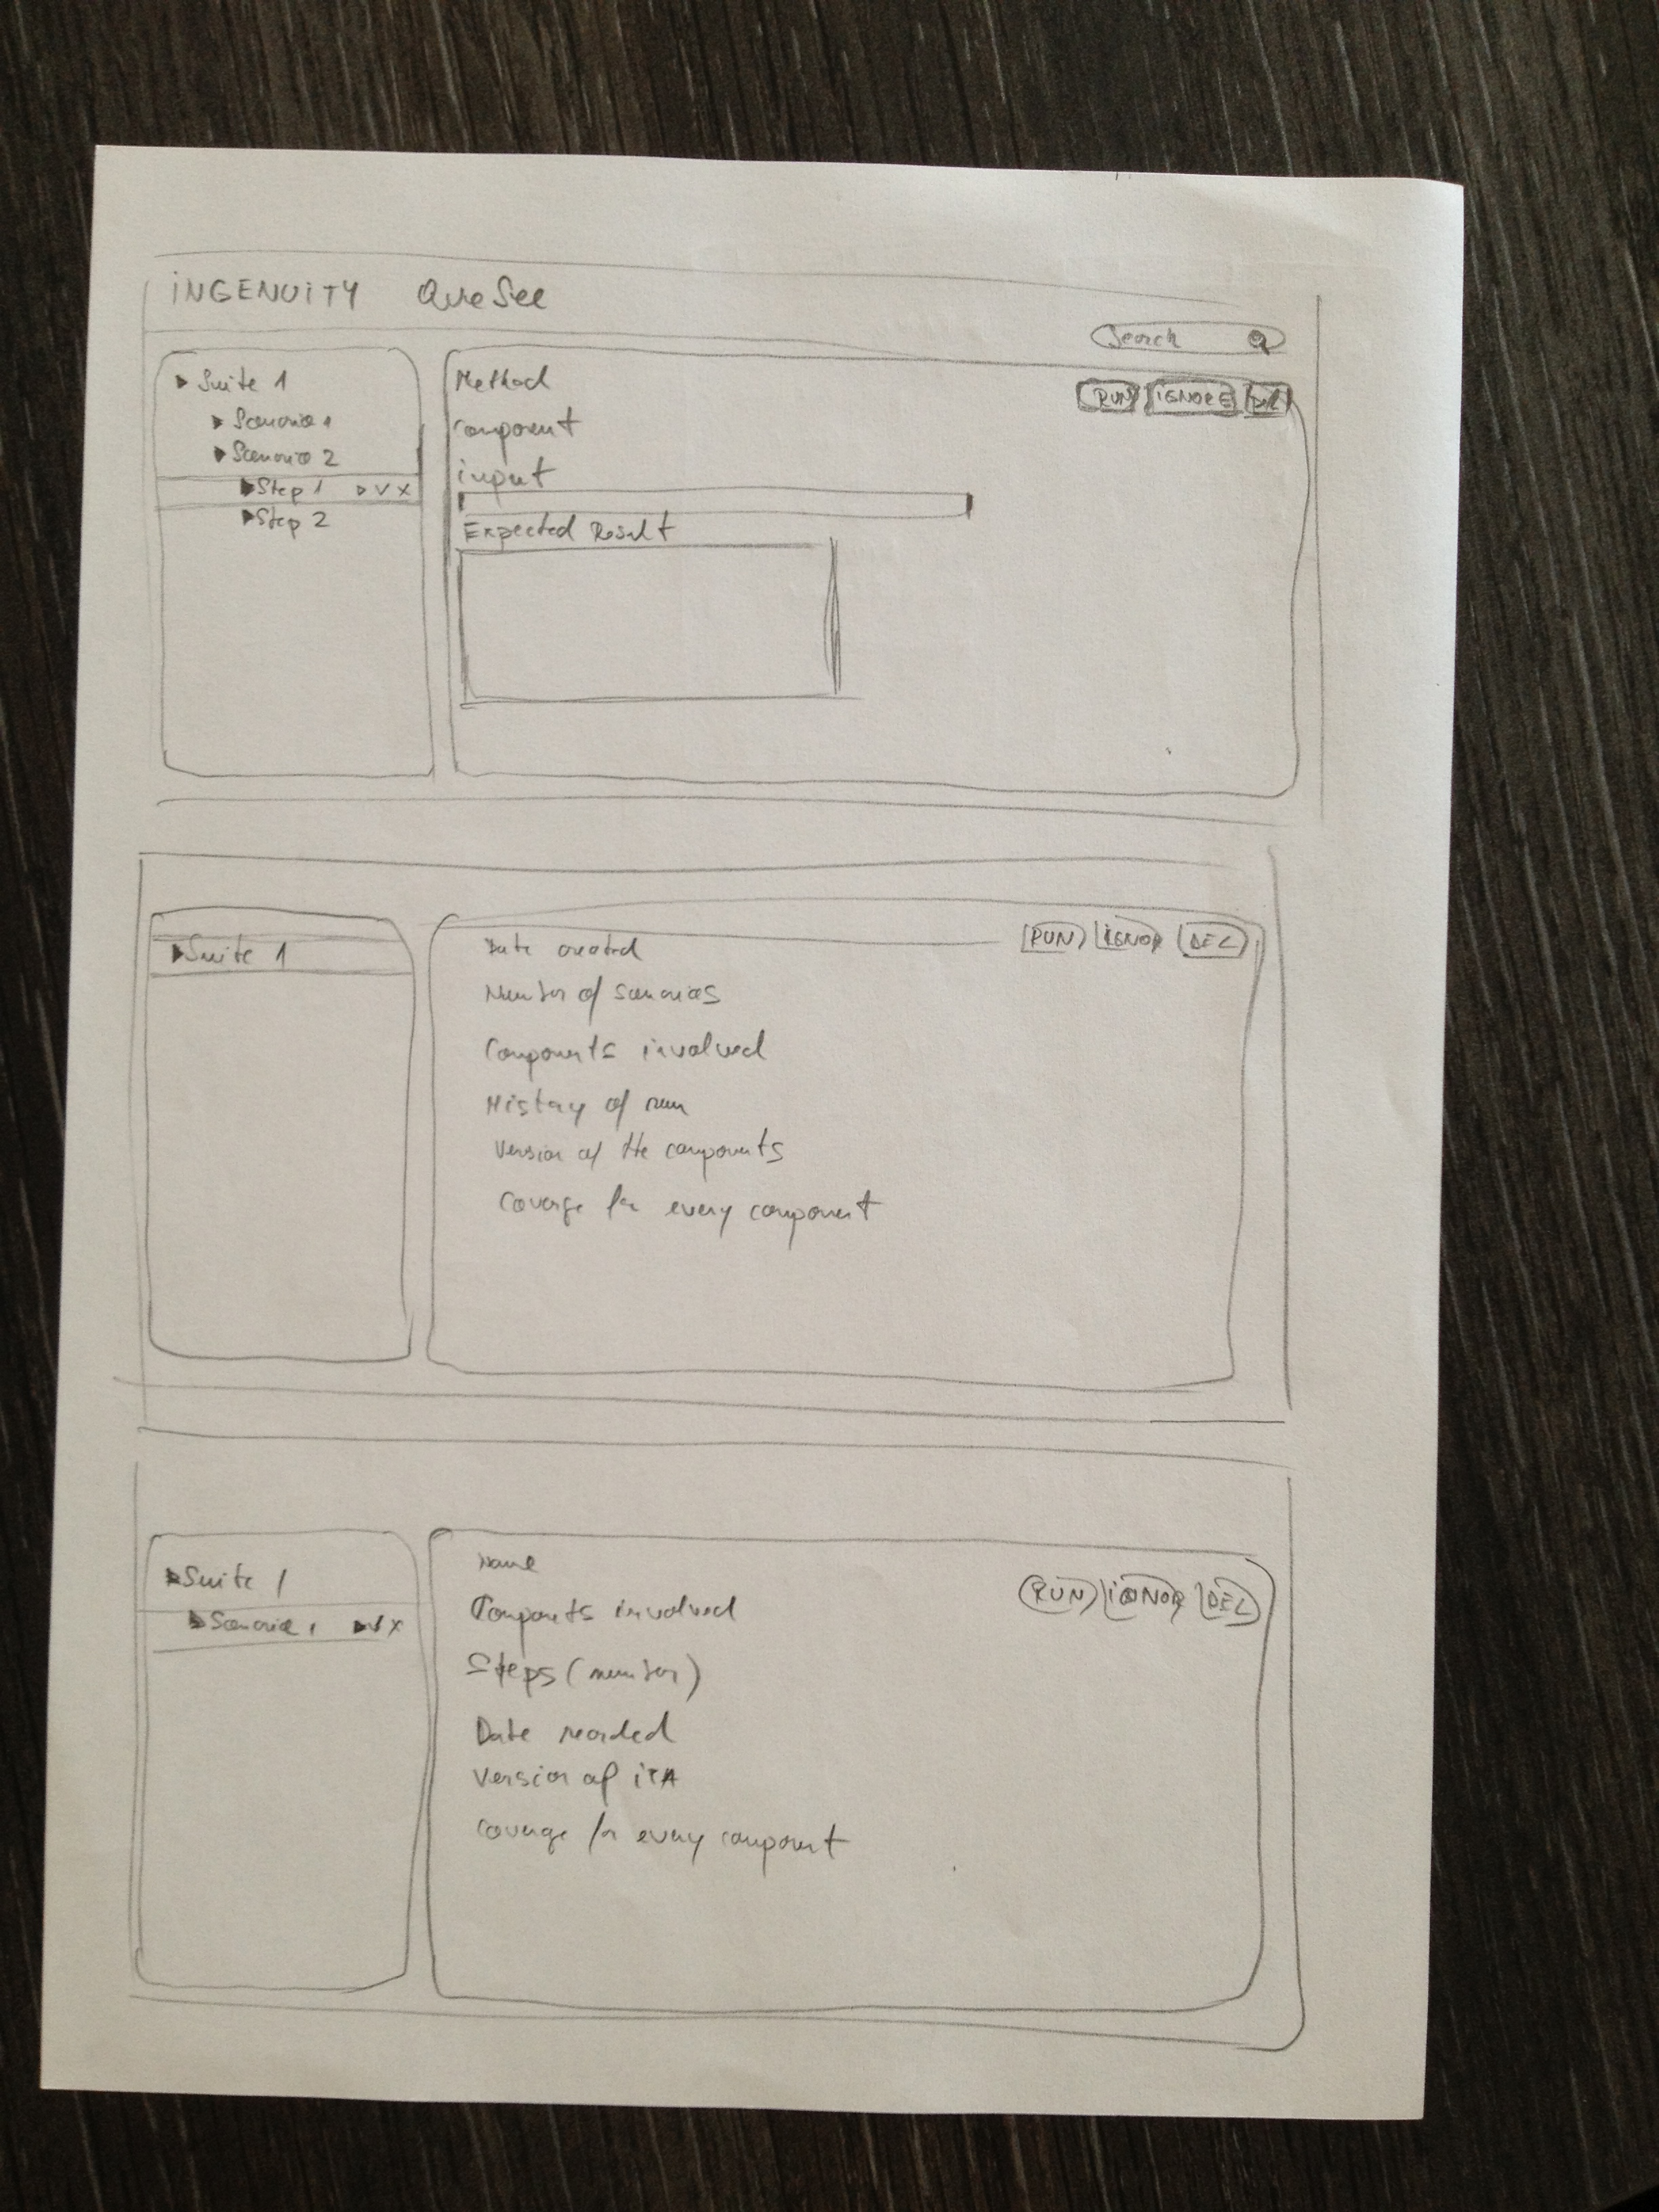 iNGENUiTY QueSee
Search
▶ Suite 1
▶ Scenario 1
▶ Scenario 2
▶ Step 1 ▷ V X
▶ Step 2
Method
RUN IGNORE DEL
component
input
Expected Result
▶ Suite 1
Date created
RUN IGNOR DEL
Number of scenarios
Components involved
History of run
Version of the components
Coverge for every component
▶ Suite 1
▶ Scenario 1 ▶ V X
Name
RUN iGNOR DEL
Components involved
Steps (number)
Date recorded
Version of
Coverge for every component